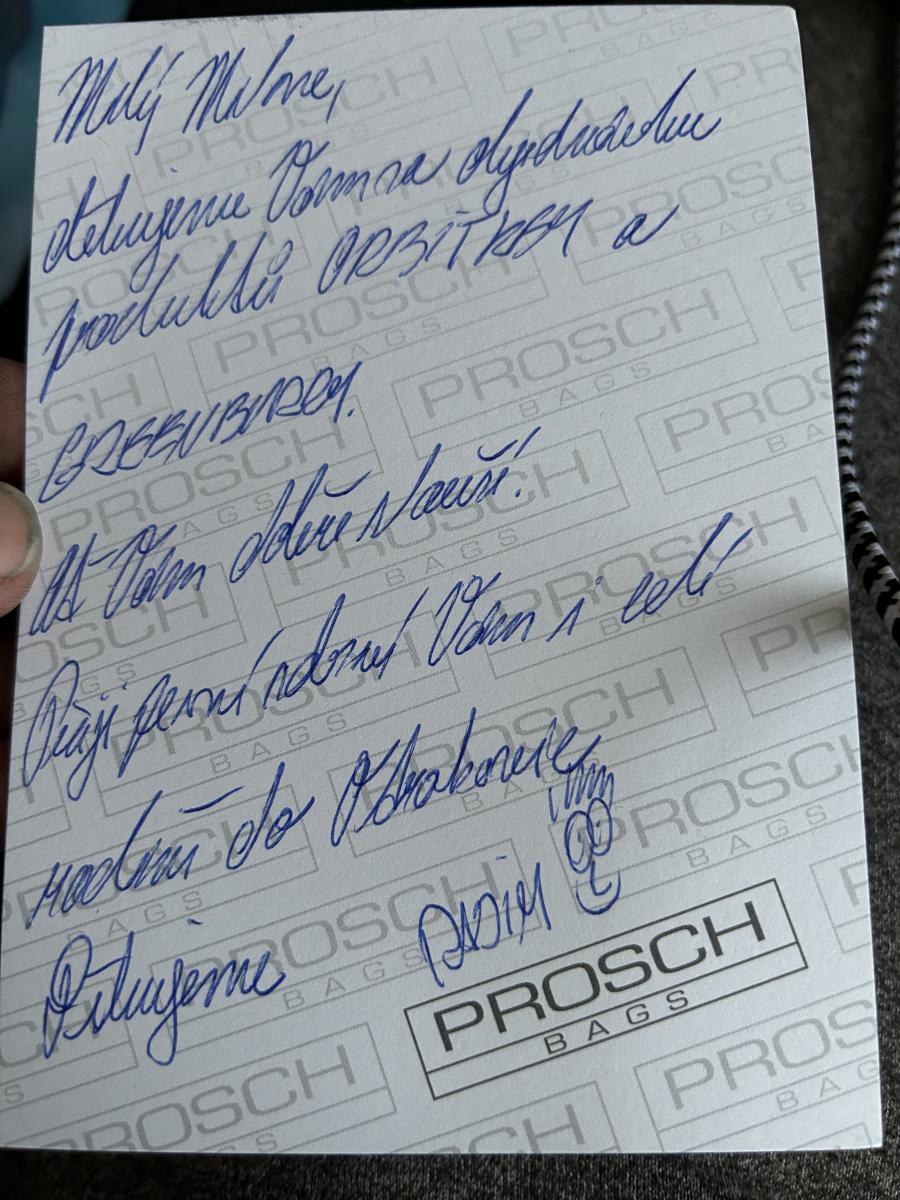 Milý Milane,
děkujeme Vám za objednávku
produktů ORBITKEY a
GREENBURRY.
Ať Vám dobře slouží!
Přeji pevné zdraví Vám i celé
rodině do
Děkujeme RADIM
PROSCH
BAGS